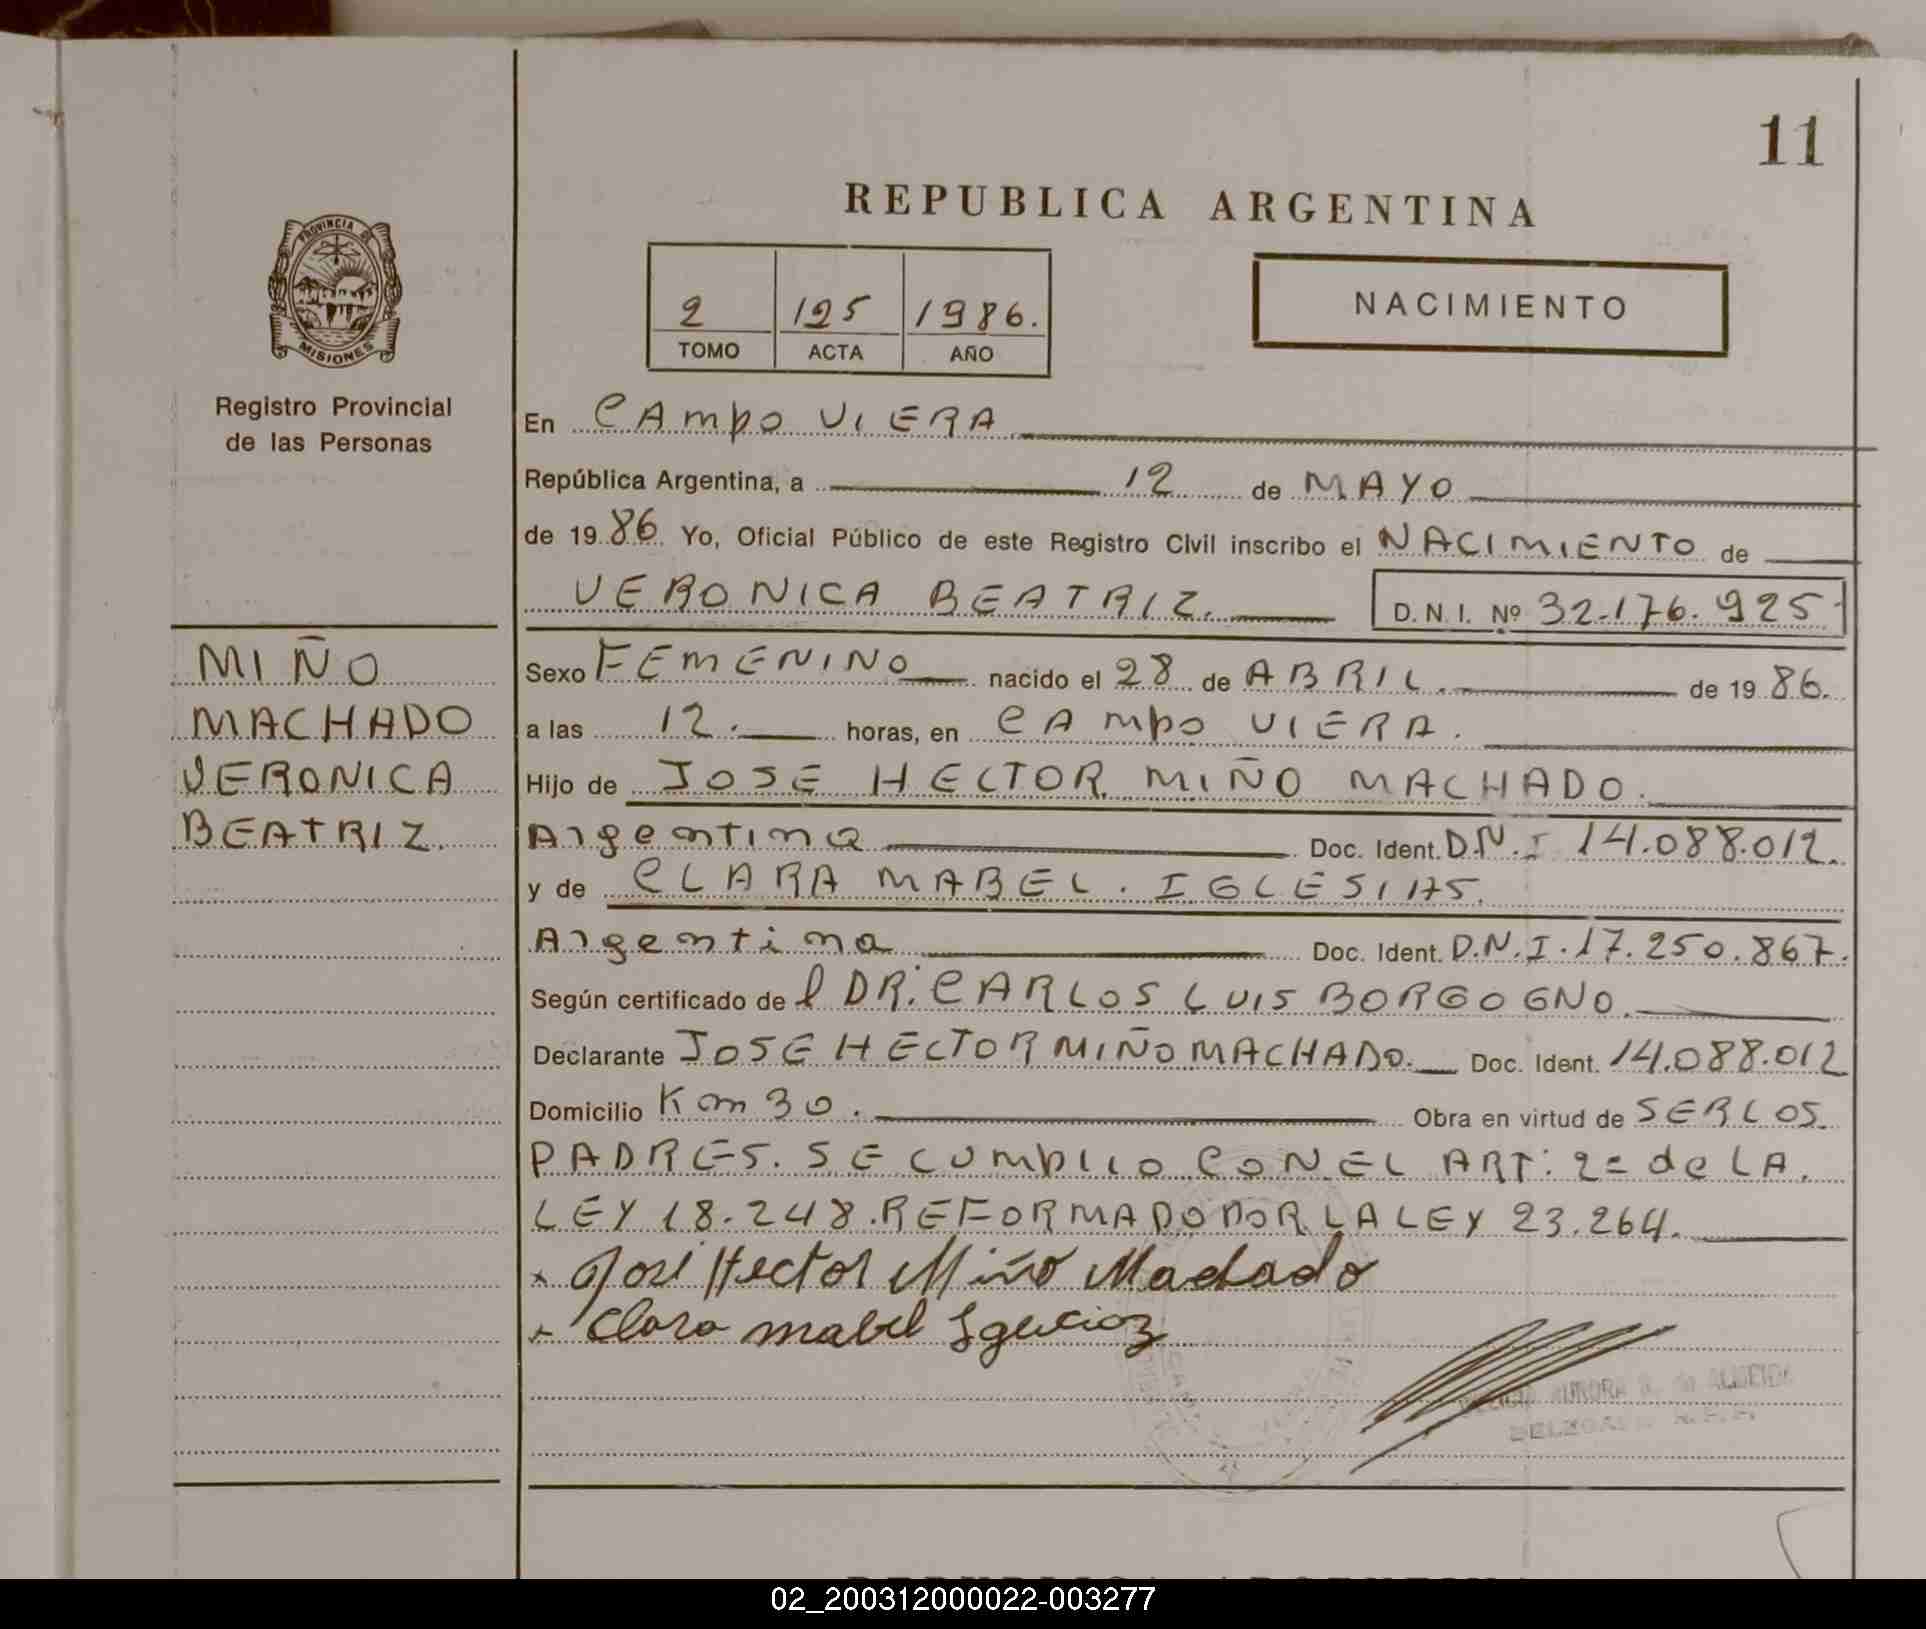 11
REPUBLICA ARGENTINA
PROVINCIA DE
MISIONES
Registro Provincial
de las Personas
2 125 1986.
TOMO ACTA AÑO
NACIMIENTO
En CAMPO VIERA
República Argentina, a 12 de MAYO
de 19 86 Yo, Oficial Público de este Registro Civil inscribo el NACIMIENTO de
VERONICA BEATRIZ. D.N.I. Nº 32.176.925
MIÑO
MACHADO
VERONICA
BEATRIZ.
Sexo FEMENINO nacido el 28 de ABRIL. de 19 86.
a las 12. horas, en CAMPO VIERA.
Hijo de JOSE HECTOR MIÑO MACHADO.
Argentina Doc. Ident. D.N.I 14.088.012.
y de CLARA MABEL. IGLESIAS.
Argentina Doc. Ident. D.N.I. 17.250.867.
Según certificado de l DR. CARLOS LUIS BORGOGNO.
Declarante JOSE HECTOR MIÑO MACHADO. Doc. Ident. 14.088.012
Domicilio Km 30. Obra en virtud de SER LOS
PADRES. SE CUMPLIO CON EL ART: 2º de LA.
LEY 18.248. REFORMADO POR LA LEY 23.264.
x José Hector Miño Machado
x Clara mabel
AURORA
02_200312000022-003277